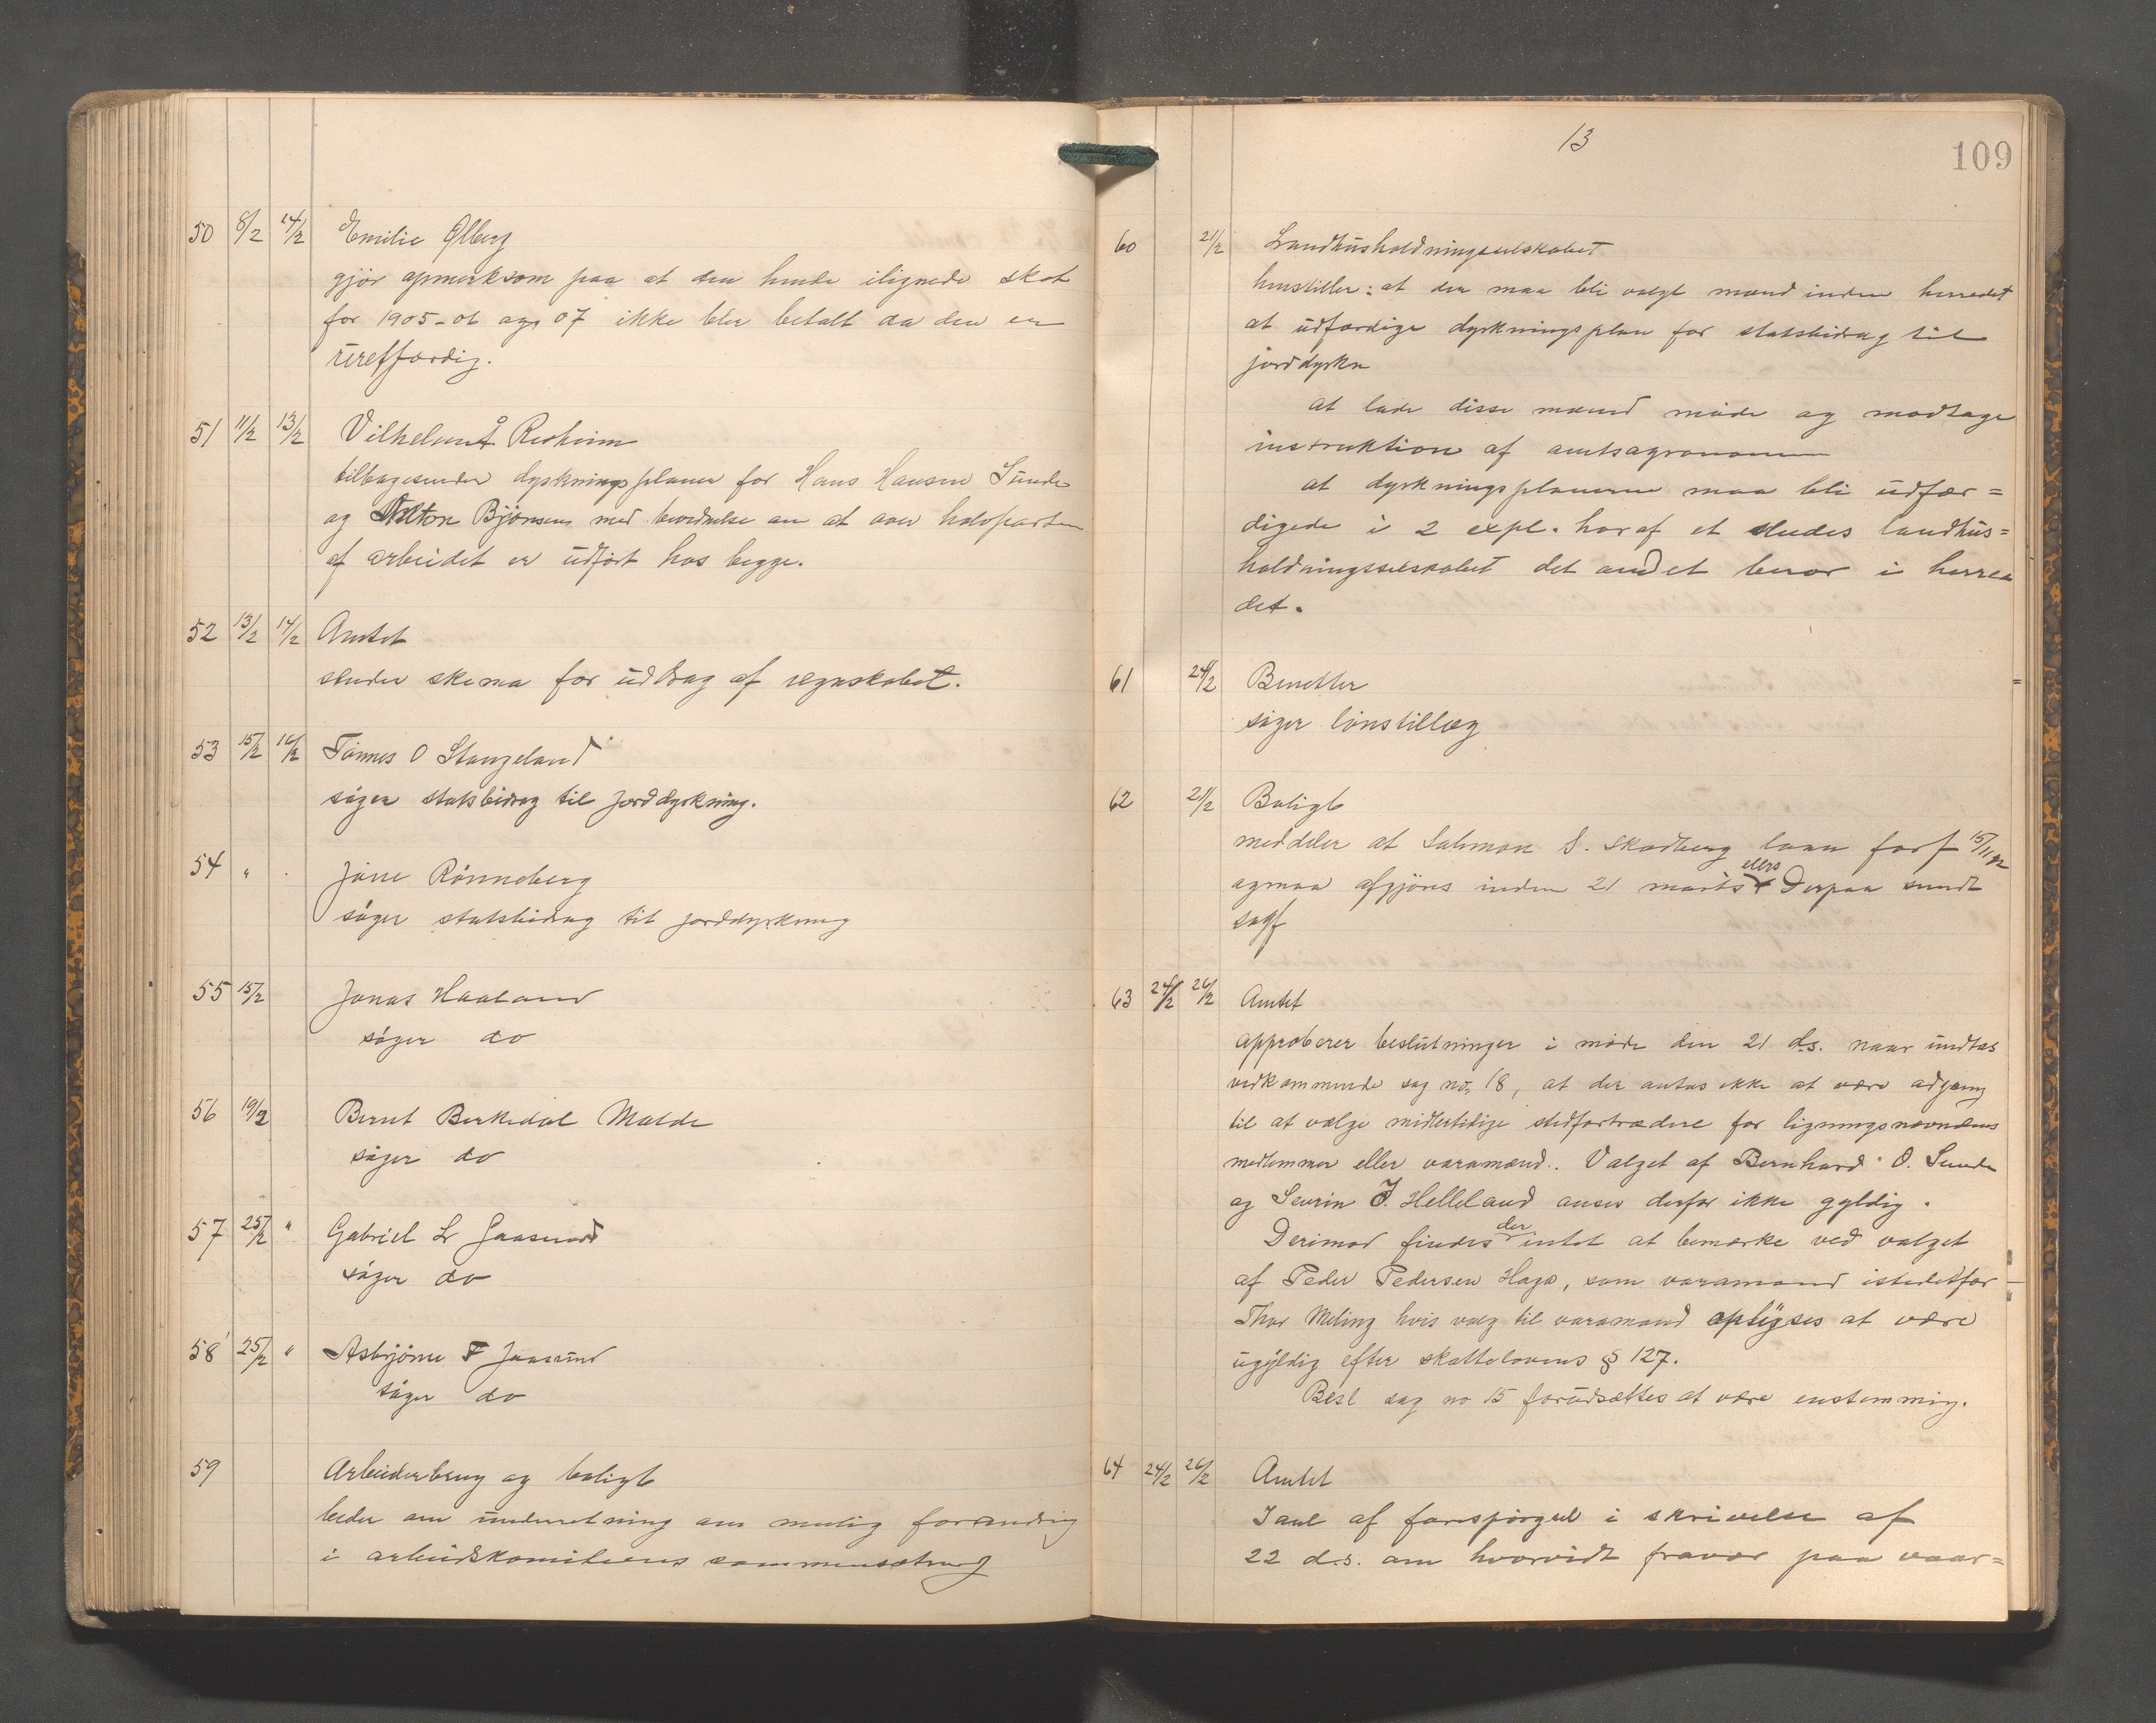 50 8/2 14/2 Emilie Ølberg
gjør opmerksom paa at den hende ilignede skat
for 1905-06 og 07 ikke blir betalt da den er
uretfærdig.
51 11/2 13/2 Vilhelm Å Risheim
tilbagesender dyrkningsplaner for Hans Hansen Sunde
og Anton Bjørnsen med bevidnelse om at over halvparten
af arbeidet er udført hos begge.
52 13/2 14/2 Amtet
sender skema for uddrag af regnskabet.
53 15/2 16/2 Tønnes O Stangeland
søger statsbidrag til jorddyrkning.
54 " . Jone Rønneberg
søger statsbidrag til jorddyrkning
55 15/2 Jonas Haaland
søger do
56 19/2 Bernt Berkedal Malde
søger do
57 25/2 " Gabriel L Jaasund
søger do
58 25/2 " Asbjørn F Jaasund
søger do
59 Arbeiderbrug og boligb
beder om underretning om mulig forandring
i arbeidskomiteens sammensætning
13
109
60 21/2 Landhusholdningsselskabet
henstiller: at der maa bli valgt mænd inden herredet
at udfærdige dyrkningsplan for statsbidrag til
jorddyrkn
at lade disse mænd møde og modtage
instruktion af amtsagronomen
at dyrkningsplanerne maa bli udfær=
digede i 2 expl. hvoraf et sendes landhus=
holdningsselskabet det andet beror i herre
det.
61 24/2 Benetter
søger lønstillæg
62 21/2 Boligb
meddeler at Salomon S. Skadberg laan forf 15/11 92
og maa afgjøres inden 21 marts ellers Derpaa sendt
sagf
63 24/2 26/2 Amtet
approberer beslutninger i møde den 21 d.s. naar undtas
vedkommende sag no. 18, at der antas ikke at være adgang
til at vælge midlertidige stedfortrædere for ligningsnævndens
medlemmer eller varamænd. Valget af Bernhard O. Sunde
og Sevrin J. Helleland anses derfor ikke gyldig.
Derimod findes der intet at bemærke ved valget
af Peder Pedersen Haga, som varamand istedetfor
Thor Meling hvis valg til varamand oplyses at være
ugyldig efter skattelovens § 127.
Besl sag no 15 forudsættes at være enstemmig.
64 24/2 26/2 Amtet
I anl af forespørgsel i skrivelse af
22 d.s. om hvorvidt fravær paa vaar=